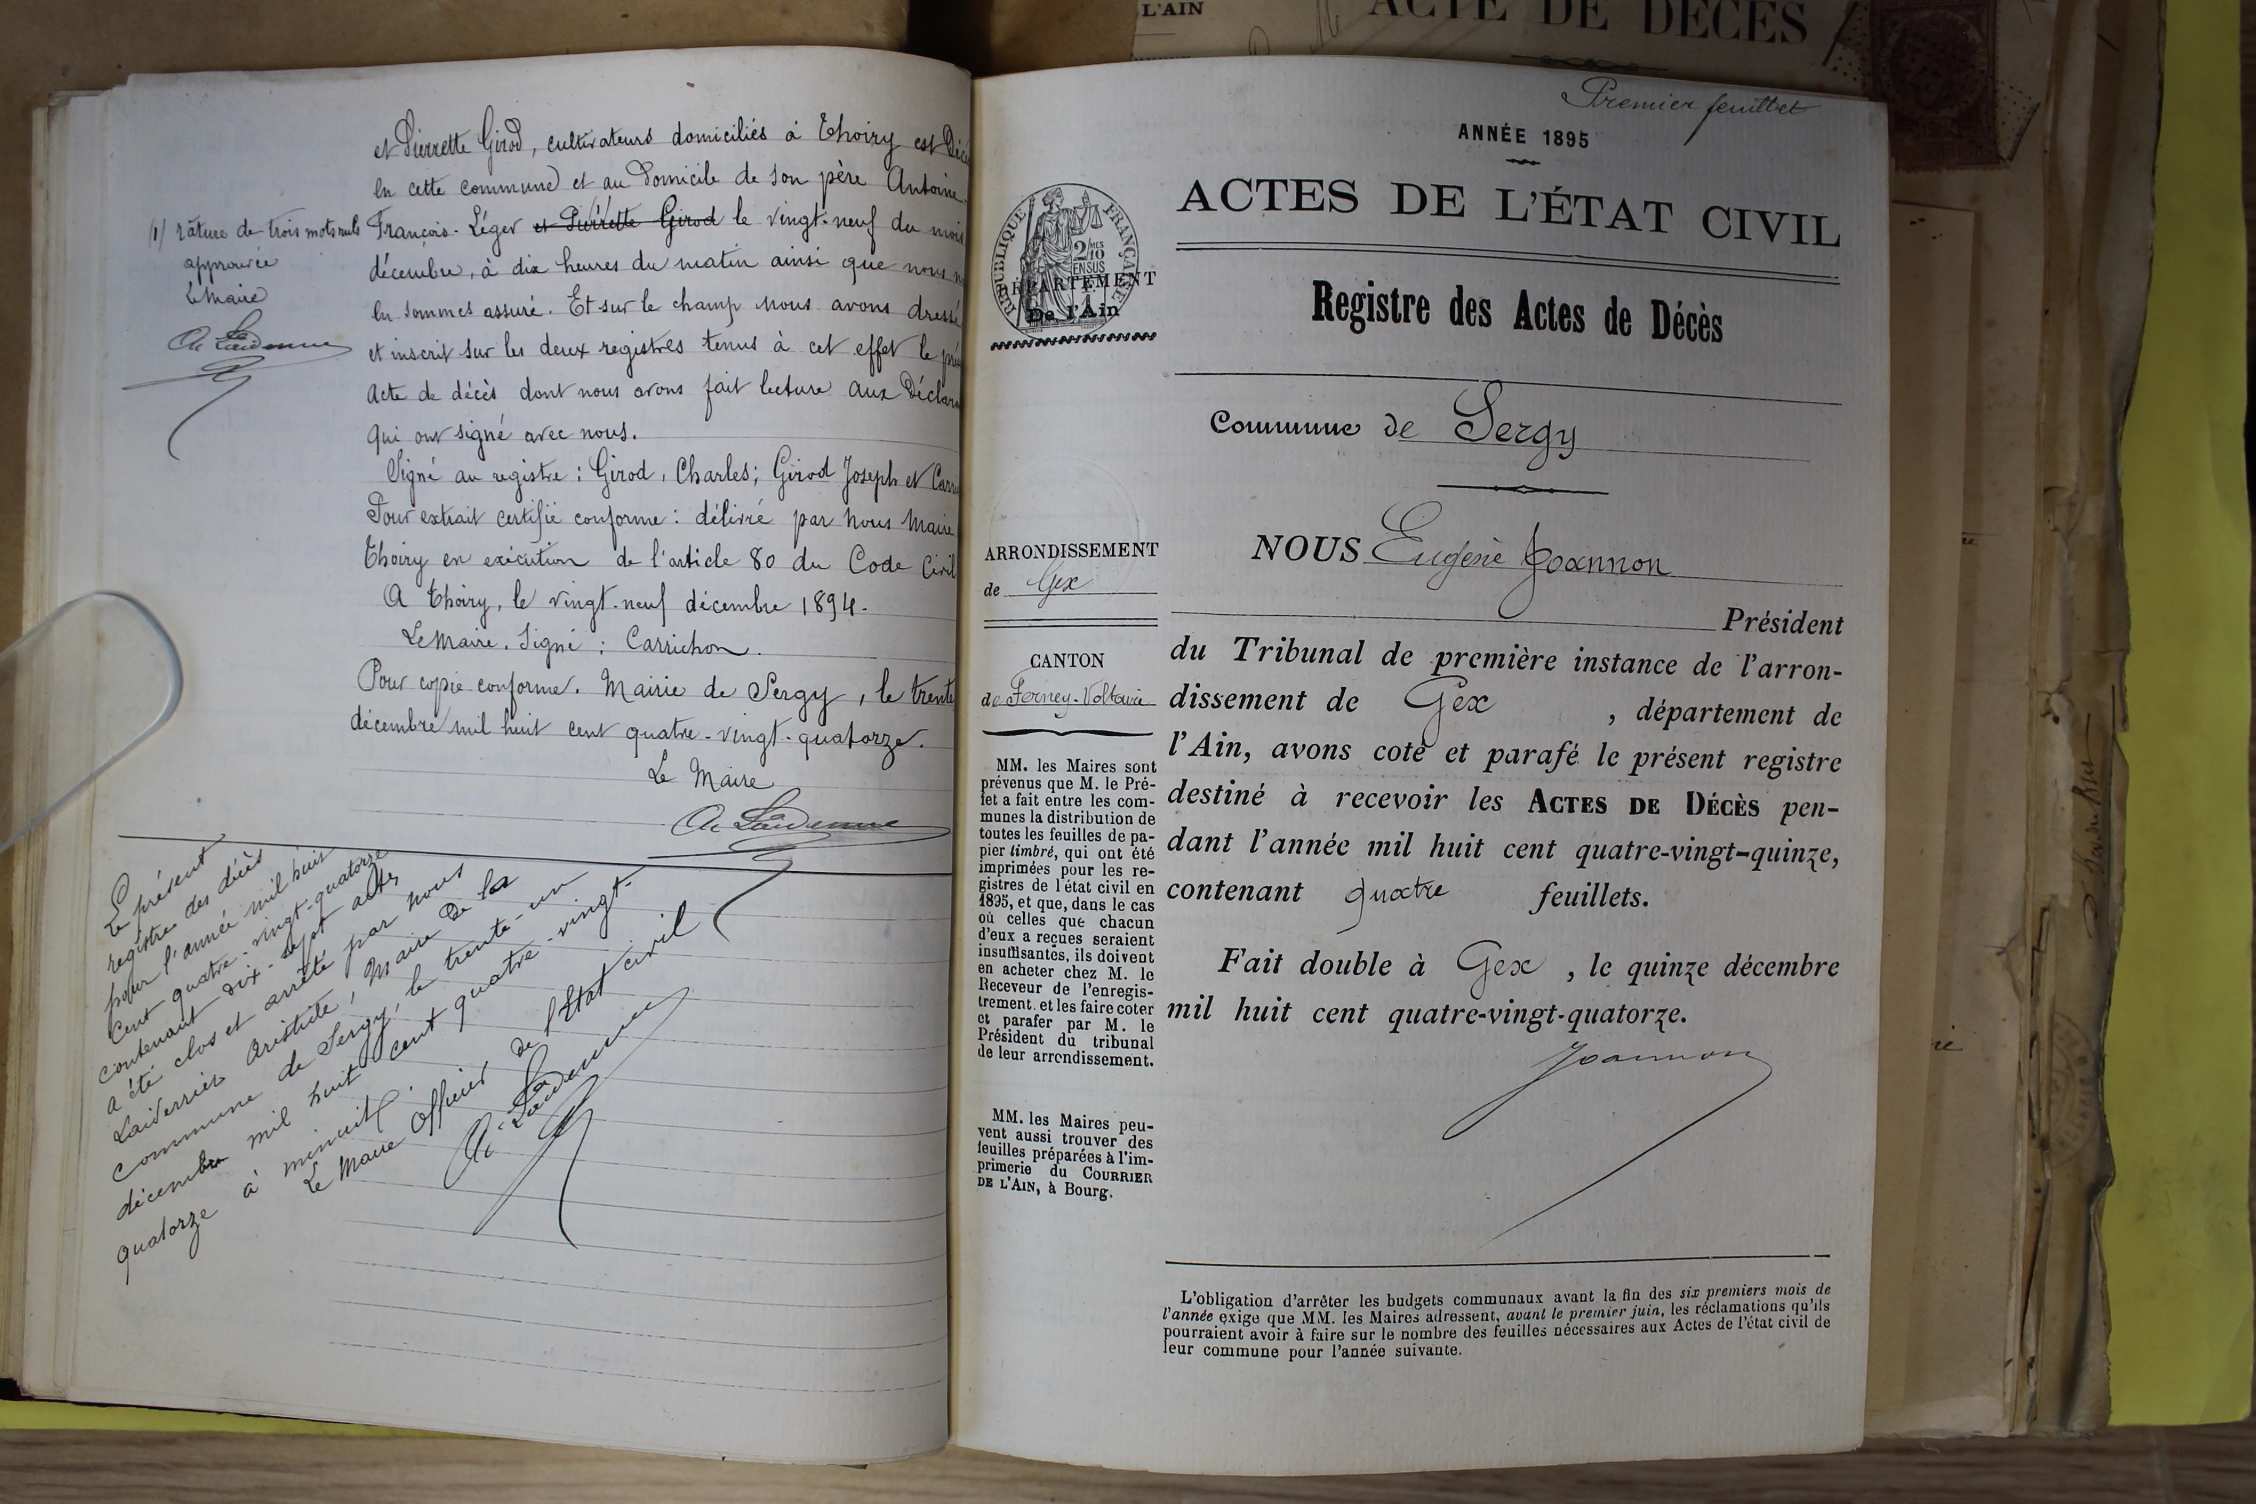 L'AIN
ACTE DE DÉCÈS
et Pierrette Girod, cultivateurs domiciliés à Thoiry est Décé
en cette commune et au Domicile de son père Antoine
François-Léger et Pierrette Girod le vingt-neuf du mois
décembre, à dix heures du matin ainsi que nous n
en sommes assuré. Et sur le champ nous avons dressé
et inscrit sur les deux registres tenus à cet effet le pré
acte de décès dont nous avons fait lecture aux Déclara
qui ont signé avec nous.
Signé au registre : Girod, Charles; Girod Joseph et Carri
Pour extrait certifié conforme : délivré par nous Maire
Thoiry en exécution de l'article 80 du Code Civil
A Thoiry, le vingt-neuf décembre 1894.
Le Maire. Signé : Carrichon.
Pour copie conforme. Mairie de Sergy, le trente
décembre mil huit cent quatre-vingt-quatorze.
Le Maire
(1) rature de trois mots nuls
approuvée
Le Maire
Le présent
registre des décès
pour l'année mil huit
cent quatre-vingt-quatorze
contenant dix-sept actes
a été clos et arrêté par nous
Laiderrier Aristide, Maire de la
commune de Sergy, le trente-un
décembre mil huit cent quatre-vingt-
quatorze à minuit.
Le Maire Officier de l'Etat civil
Premier feuillet
ANNÉE 1895
ACTES DE L'ÉTAT CIVIL
Registre des Actes de Décès
RÉPUBLIQUE FRANÇAISE
2/10 MES
EN SUS
DÉPARTEMENT
De l'Ain
Commune de Sergy
ARRONDISSEMENT
de Gex
CANTON
de Ferney-Voltaire
MM. les Maires sont
prévenus que M. le Pré-
fet a fait entre les com-
munes la distribution de
toutes les feuilles de pa-
pier timbré, qui ont été
imprimées pour les re-
gistres de l'état civil en
1895, et que, dans le cas
où celles que chacun
d'eux a reçues seraient
insuffisantes, ils doivent
en acheter chez M. le
Receveur de l'enregis-
trement. et les faire coter
et parafer par M. le
Président du tribunal
de leur arrondissement.
MM. les Maires peu-
vent aussi trouver des
feuilles préparées à l'im-
primerie du COURRIER
DE L'AIN, à Bourg.
NOUS Eugène Joannon
Président
du Tribunal de première instance de l'arron-
dissement de Gex , département de
l'Ain, avons coté et parafé le présent registre
destiné à recevoir les ACTES DE DÉCÈS pen-
dant l'année mil huit cent quatre-vingt-quinze,
contenant quatre feuillets.
Fait double à Gex , le quinze décembre
mil huit cent quatre-vingt-quatorze.
Joannon
L'obligation d'arrêter les budgets communaux avant la fin des six premiers mois de
l'année exige que MM. les Maires adressent, avant le premier juin, les réclamations qu'ils
pourraient avoir à faire sur le nombre des feuilles nécessaires aux Actes de l'état civil de
leur commune pour l'année suivante.